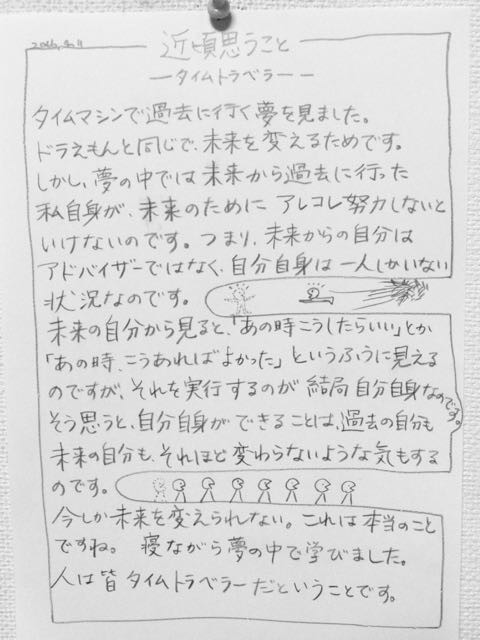 近頃思うこと
ータイムトラベラーー
タイムマシンで過去に行く夢を見ました。
ドラえもんと同じで、未来を変えるためです。
しかし、夢の中では未来から過去に行った
私自身が、未来のために アレコレ努力しないと
いけないのです。つまり、未来からの自分は
アドバイザーではなく、自分自身は一人しかいない
状況なのです。
未来の自分から見ると、「あの時こうしたらいい」とか
「あの時、こうあればよかった」というふうに見える
のですが、それを実行するのが 結局 自分自身なのです。
そう思うと、自分自身ができることは、過去の自分も
未来の自分も、それほど変わらないような気もする
のです。
今しか未来を変えられない。これは本当のこと
ですね。 寝ながら夢の中で学びました。
人は皆 タイムトラベラーだということです。